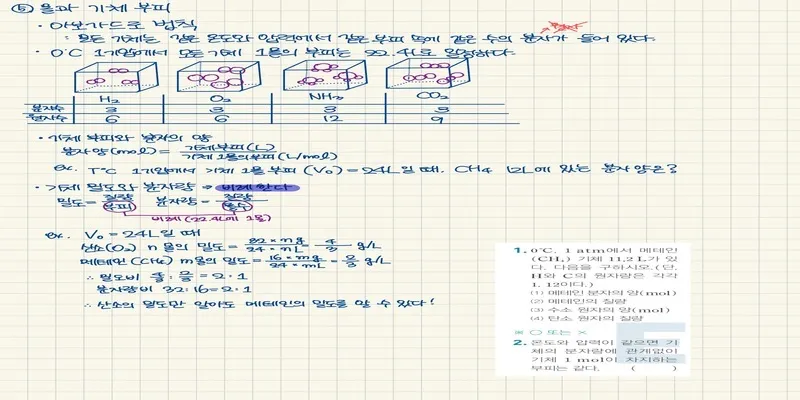 ⑤ 몰과 기체 부피
· 아보가드로 법칙
: 모든 기체는 같은 온도와 압력에서 같은 부피 속에 같은 수의 분자가 들어 있다.
· 0°C 1기압에서 모든 기체 1몰의 부피는 22.4L로 일정하다.
H₂ O₂ NH₃ CO₂
분자수 3 3 3 3
원자수 6 6 12 9
· 기체 부피와 분자의 양
분자 양(mol) = 기체부피(L) / 기체 1몰의 부피(L/mol)
ex. T°C 1기압에서 기체 1몰 부피 (V₀) = 24L일 때, CH₄ 12L에 있는 분자 양은?
· 기체 밀도와 분자량 → 비례한다
밀도 = 질량/부피 분자량 = 질량/몰수
비례 (22.4L에 1몰)
ex. V₀ = 24L일 때
산소(O₂) n몰의 밀도 = 32×n g / 24×n L = 4/3 g/L
메테인(CH₄) m몰의 밀도 = 16×m g / 24×m L = 2/3 g/L
∴ 밀도비 4/3 : 2/3 = 2 : 1
분자량비 32 : 16 = 2 : 1
∴ 산소의 밀도만 알아도 메테인의 밀도를 알 수 있다!
1. 0℃, 1 atm에서 메테인
(CH₄) 기체 11.2 L가 있
다. 다음을 구하시오.(단,
H와 C의 원자량은 각각
1, 12이다.)
(1) 메테인 분자의 양(mol)
(2) 메테인의 질량
(3) 수소 원자의 양(mol)
(4) 탄소 원자의 질량
※ ○ 또는 ×
2. 온도와 압력이 같으면 기
체의 분자량에 관계없이
기체 1 mol이 차지하는
부피는 같다. ( )